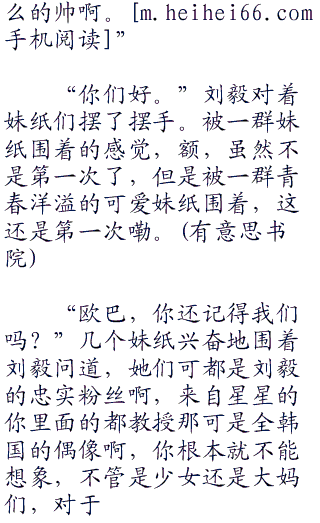 么的帅啊。[m.heihei66.com
手机阅读]”
“你们好。”刘毅对着
妹纸们摆了摆手。被一群妹
纸围着的感觉，额，虽然不
是第一次了，但是被一群青
春洋溢的可爱妹纸围着，这
还是第一次嘞。(有意思书
院)
“欧巴，你还记得我们
吗？”几个妹纸兴奋地围着
刘毅问道，她们可都是刘毅
的忠实粉丝啊，来自星星的
你里面的都教授那可是全韩
国的偶像啊，你根本就不能
想象，不管是少女还是大妈
们，对于